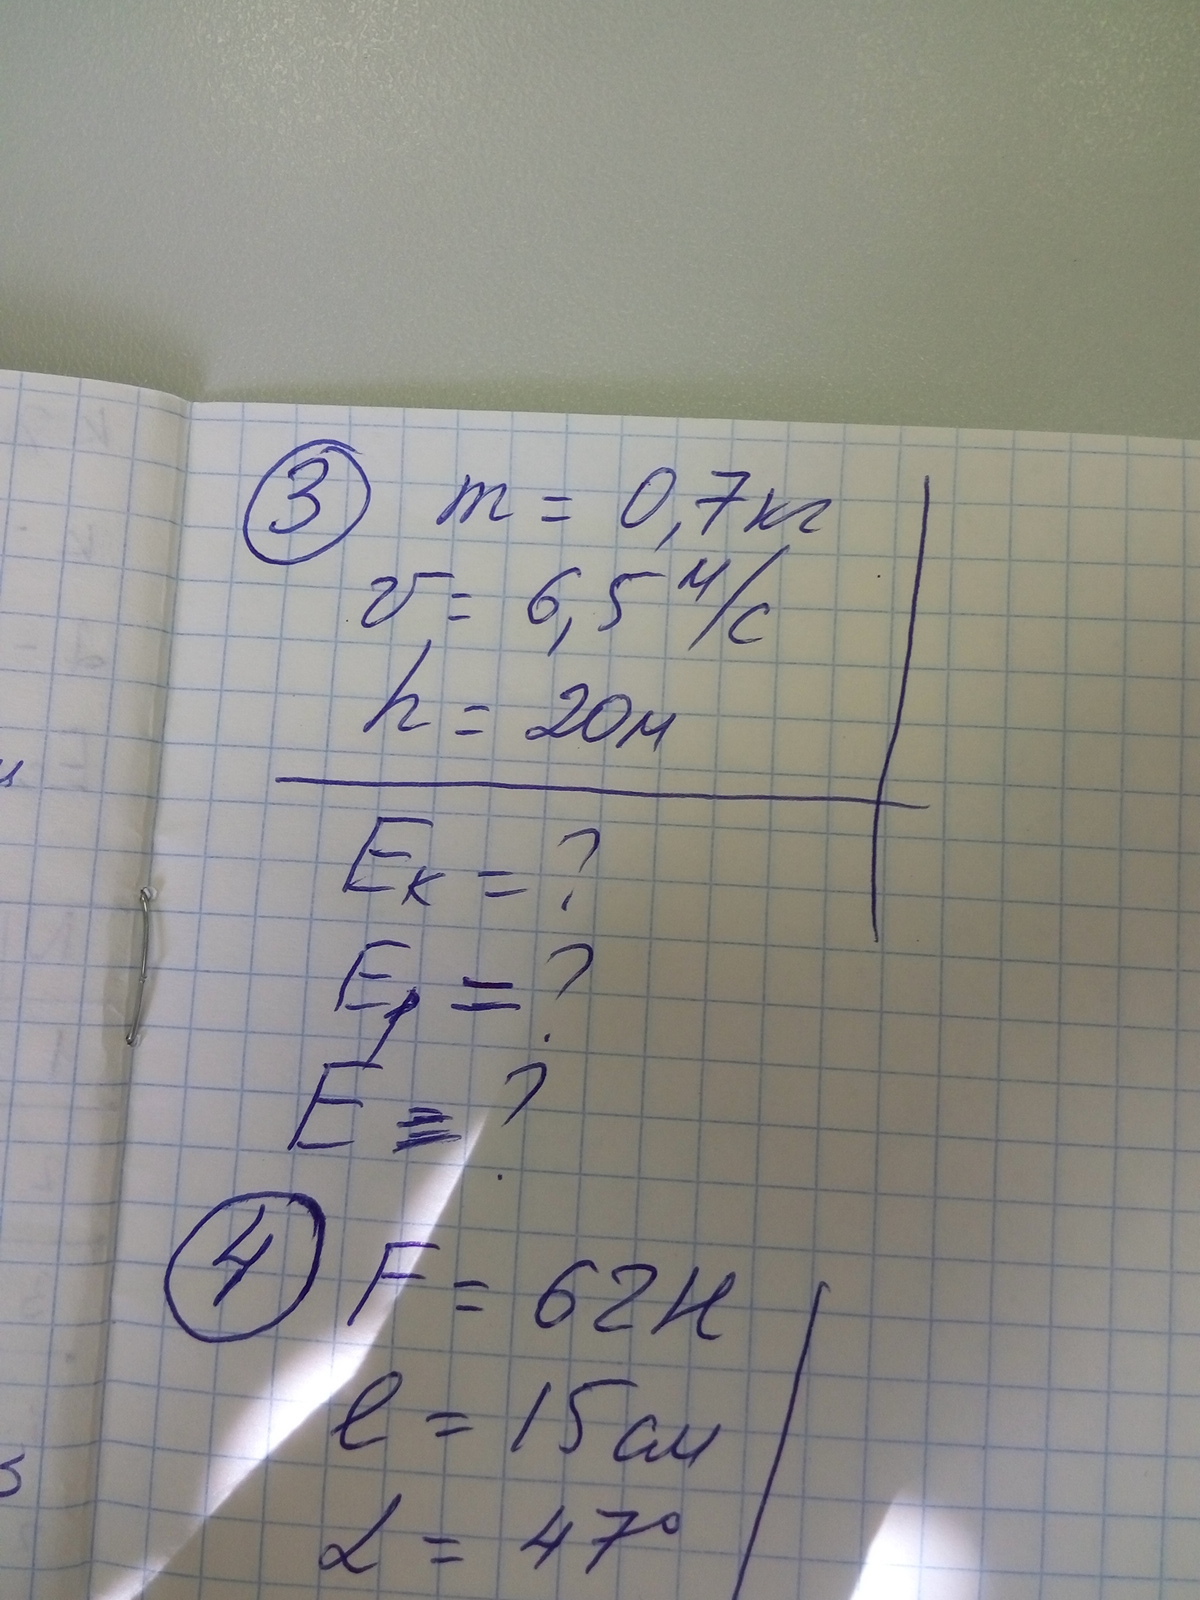 ③ m = 0,7кг
v = 6,5 м/с
h = 20м
Eк = ?
Ep = ?
E = ?
④ F = 62Н
l = 15см
α = 47°